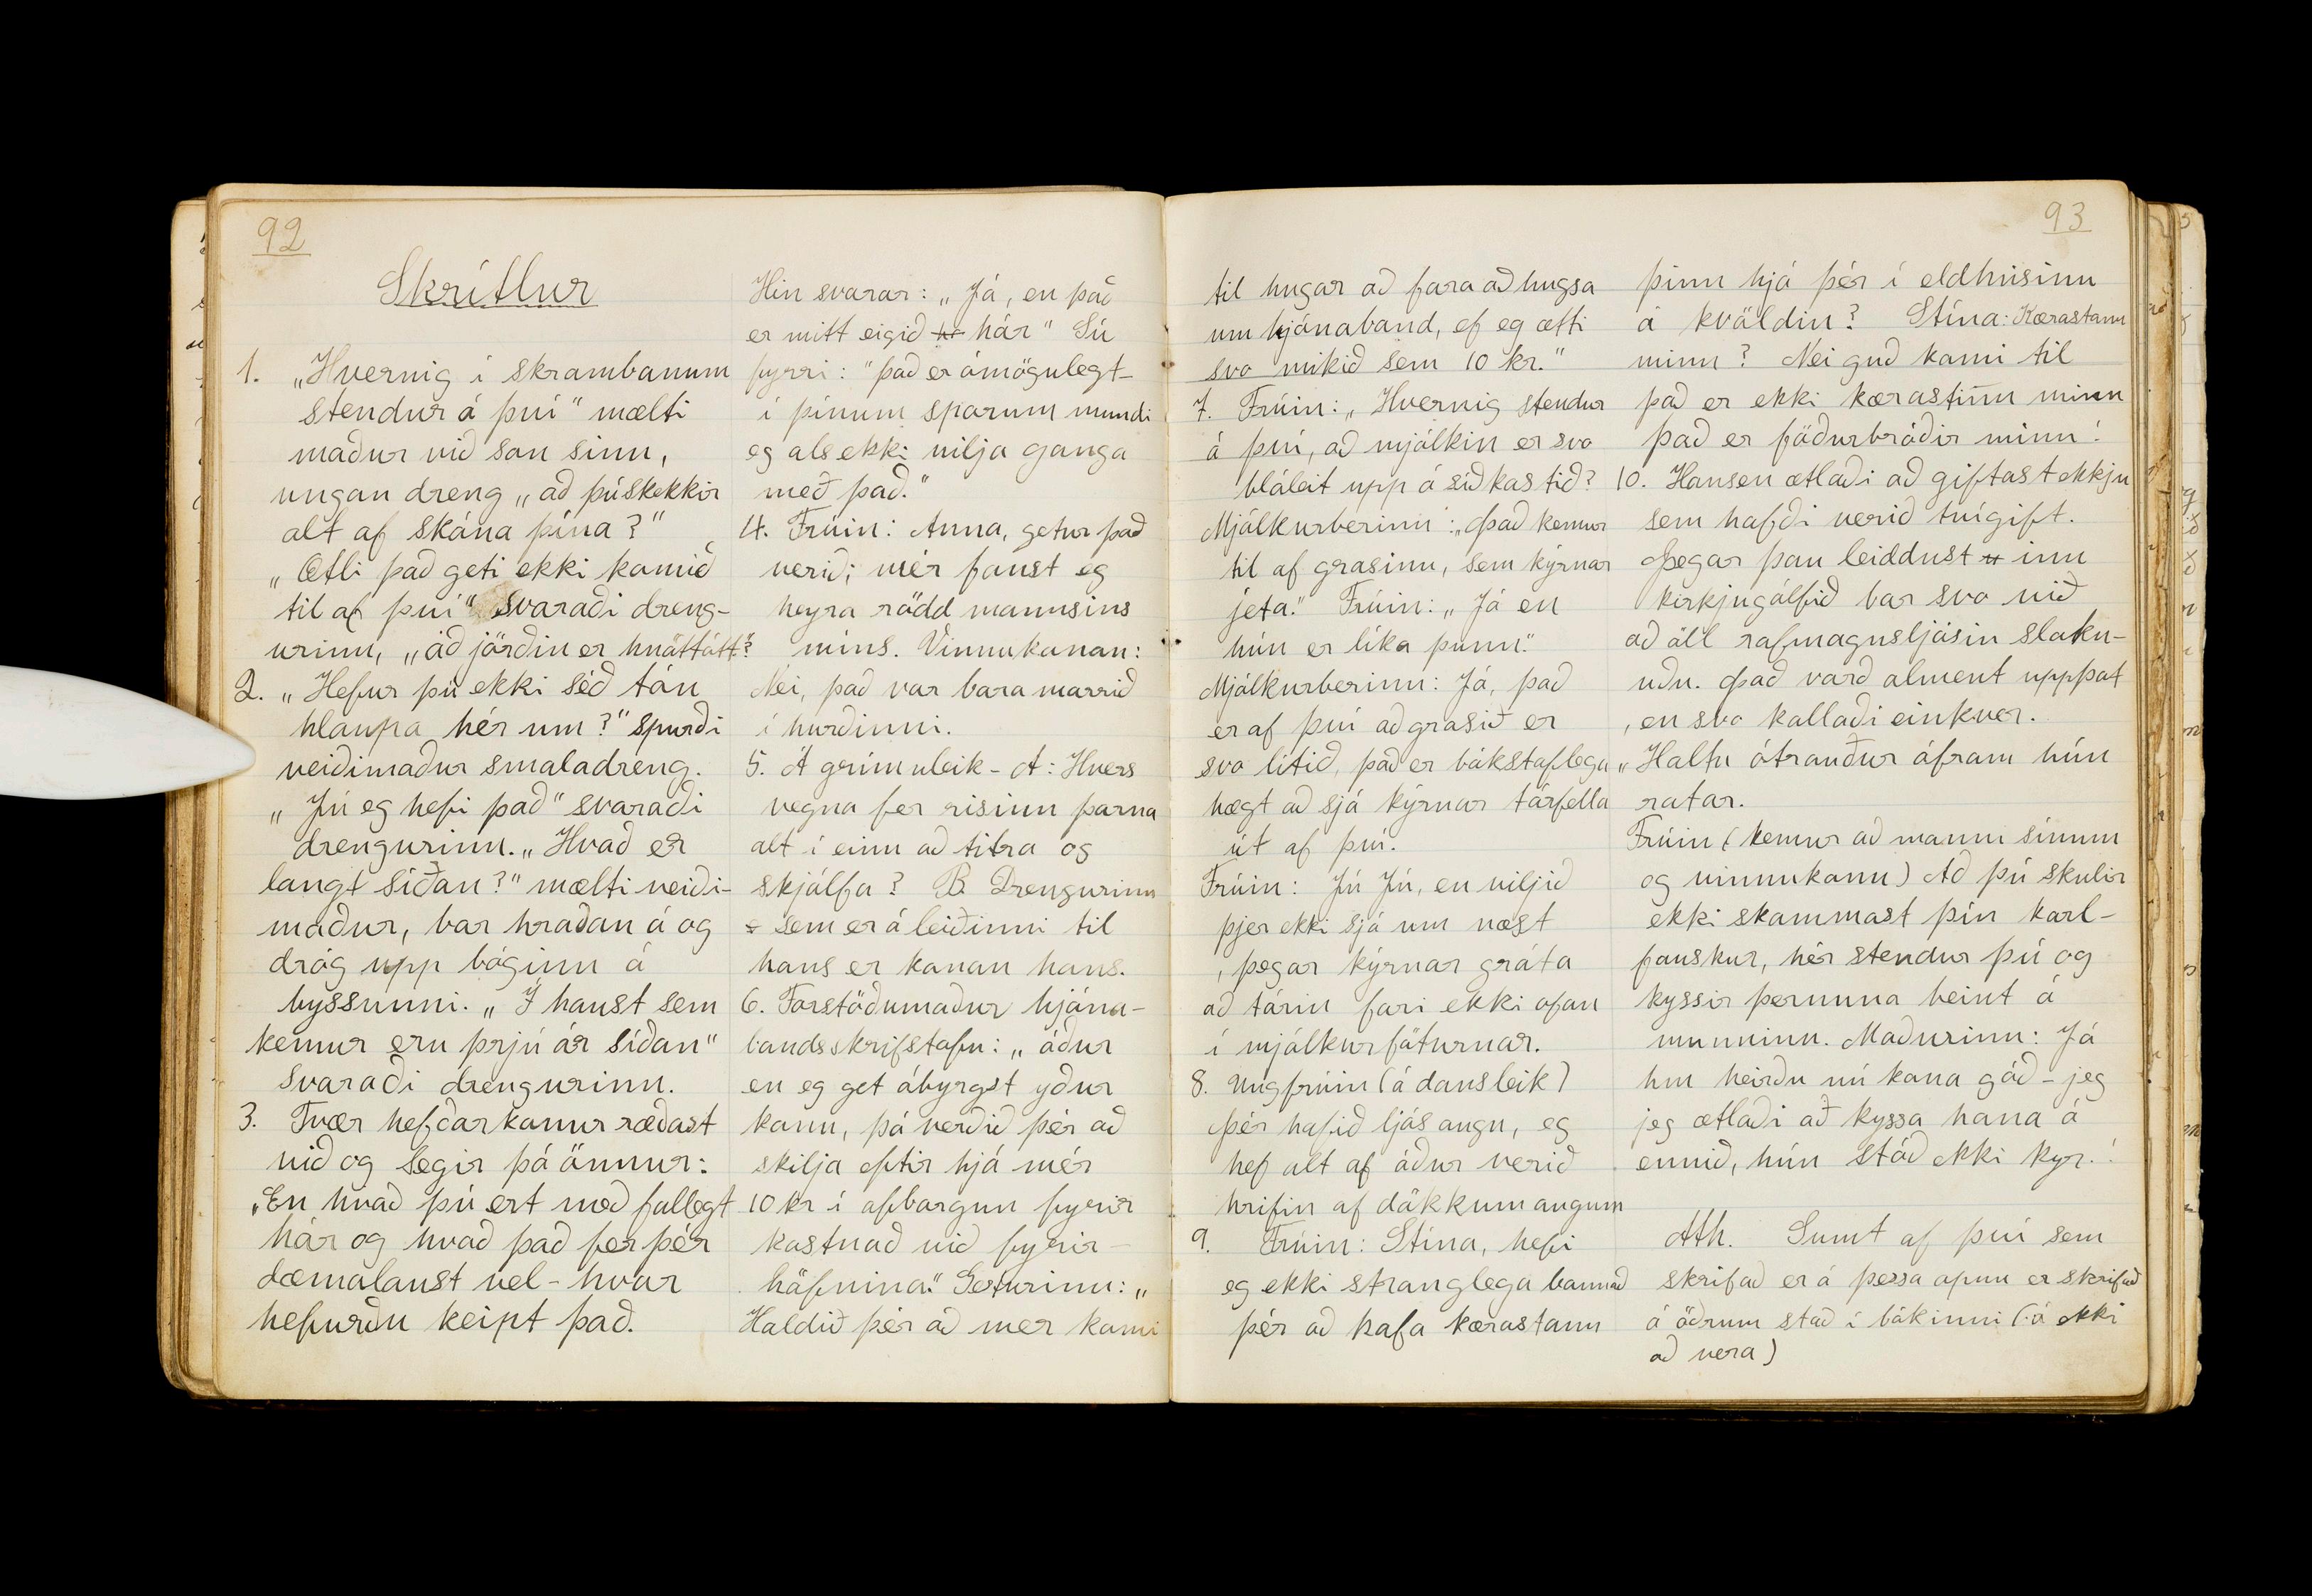 92
Skrítlur
1. „Hvernig í skrambanum
stendur á því" mælti
maður við son sinn,
ungan dreng „að þú skekkir
alt af skóna þína?"
„Ætli það geti ekki komið
til af því" svaraði dreng-
urinn, „að jörðin er hnöttótt"?
2. „Hefur þú ekki séð tóu
hlaupa hér um?" spurði
veiðimaður smaladreng.
„Jú eg hefi það" svaraði
drengurinn. „Hvað er
langt síðan?" mælti veiði-
maður, bar hraðan á og
dróg upp bóginn á
byssunni. „Í haust sem
kemur eru þrjú ár síðan"
svaraði drengurinn.
3. Tvær hefðarkonur ræðast
við og segir þá önnur:
„En hvað þú ert með fallegt
hár og hvað það fer þér
dæmalaust vel - hvar
hefurðu keipt það.
Hin svarar: „Já, en það
er mitt eigið hár" Sú
fyrri: "það er ómögulegt-
í þínum sporum mundi
eg als ekki vilja ganga
með það."
4. Frúin: Anna, getur það
verið; mér fanst eg
heyra rödd mannsins
míns. Vinnukonan:
Nei, það var bara marrið
í hurðinni.
5. Á grímuleik - A: Hvers
vegna fer risinn þarna
alt í einu að titra og
skjálfa? B. Drengurinn
sem er á leiðinni til
hans er konan hans.
6. Forstöðumaður hjóna-
bandsskrifstofu: „áður
en eg get ábyrgst yður
konu, þá verðið þér að
skilja eftir hjá mér
10 kr í afborgun fyrir
kostnað við fyrir-
höfnina." Gesturinn: „
Haldið þér að mer komi
93
til hugar að fara að hugsa
um hjónaband, ef eg ætti
svo mikið sem 10 kr."
7. Frúin: „Hvernig stendur
á því, að mjólkin er svo
bláleit upp á síðkastið?
Mjólkurberinn: „Það kemur
til af grasinu, sem kýrnar
jeta." Frúin: „Já en
hún er líka þunn."
Mjólkurberinn: Já, það
er af því að grasið er
svo lítið, það er bókstaflega
hægt að sjá kýrnar tárfella
út af því.
Frúin: Jú Jú, en viljið
þjer ekki sjá um næst
, þegar kýrnar gráta
að tárin fari ekki ofan
í mjólkurföturnar.
8. Ungfrúin (á dansleik)
Þér hafið ljós augu, eg
hef alt af áður verið
hrifin af dökkum augum
9. Frúin: Stína, hefi
eg ekki stranglega bannað
þér að hafa kærastann
þinn hjá þér í eldhúsinu
á kvöldin? Stína: Kærastann
minn? Nei guð komi til
það er ekki kærastinn minn
það er föðurbróðir minn!
10. Hansen ætlaði að giftast ekkju
sem hafði verið tvígift.
Þegar þau leiddust inn
kirkjugólfið bar svo við
að öll rafmagnsljósin slokn-
uðu. Það varð alment uppþot
, en svo kallaði einhver.
„Haltu ótrauður áfram hún
ratar.
Frúin (kemur að manni sínum
og vinnukonu) Að þú skulir
ekki skammast þín karl-
fauskur, hér stendur þú og
kyssir þernuna beint á
munninn. Maðurinn: Já
hm heirðu nú kona góð - jeg
jeg ætlaði að kyssa hana á
ennið, hún stóð ekki kyr.!
Ath. Sumt af því sem
skrifað er á þessa opnu er skrifað
á öðrum stað í bókinni (á ekki
að vera)